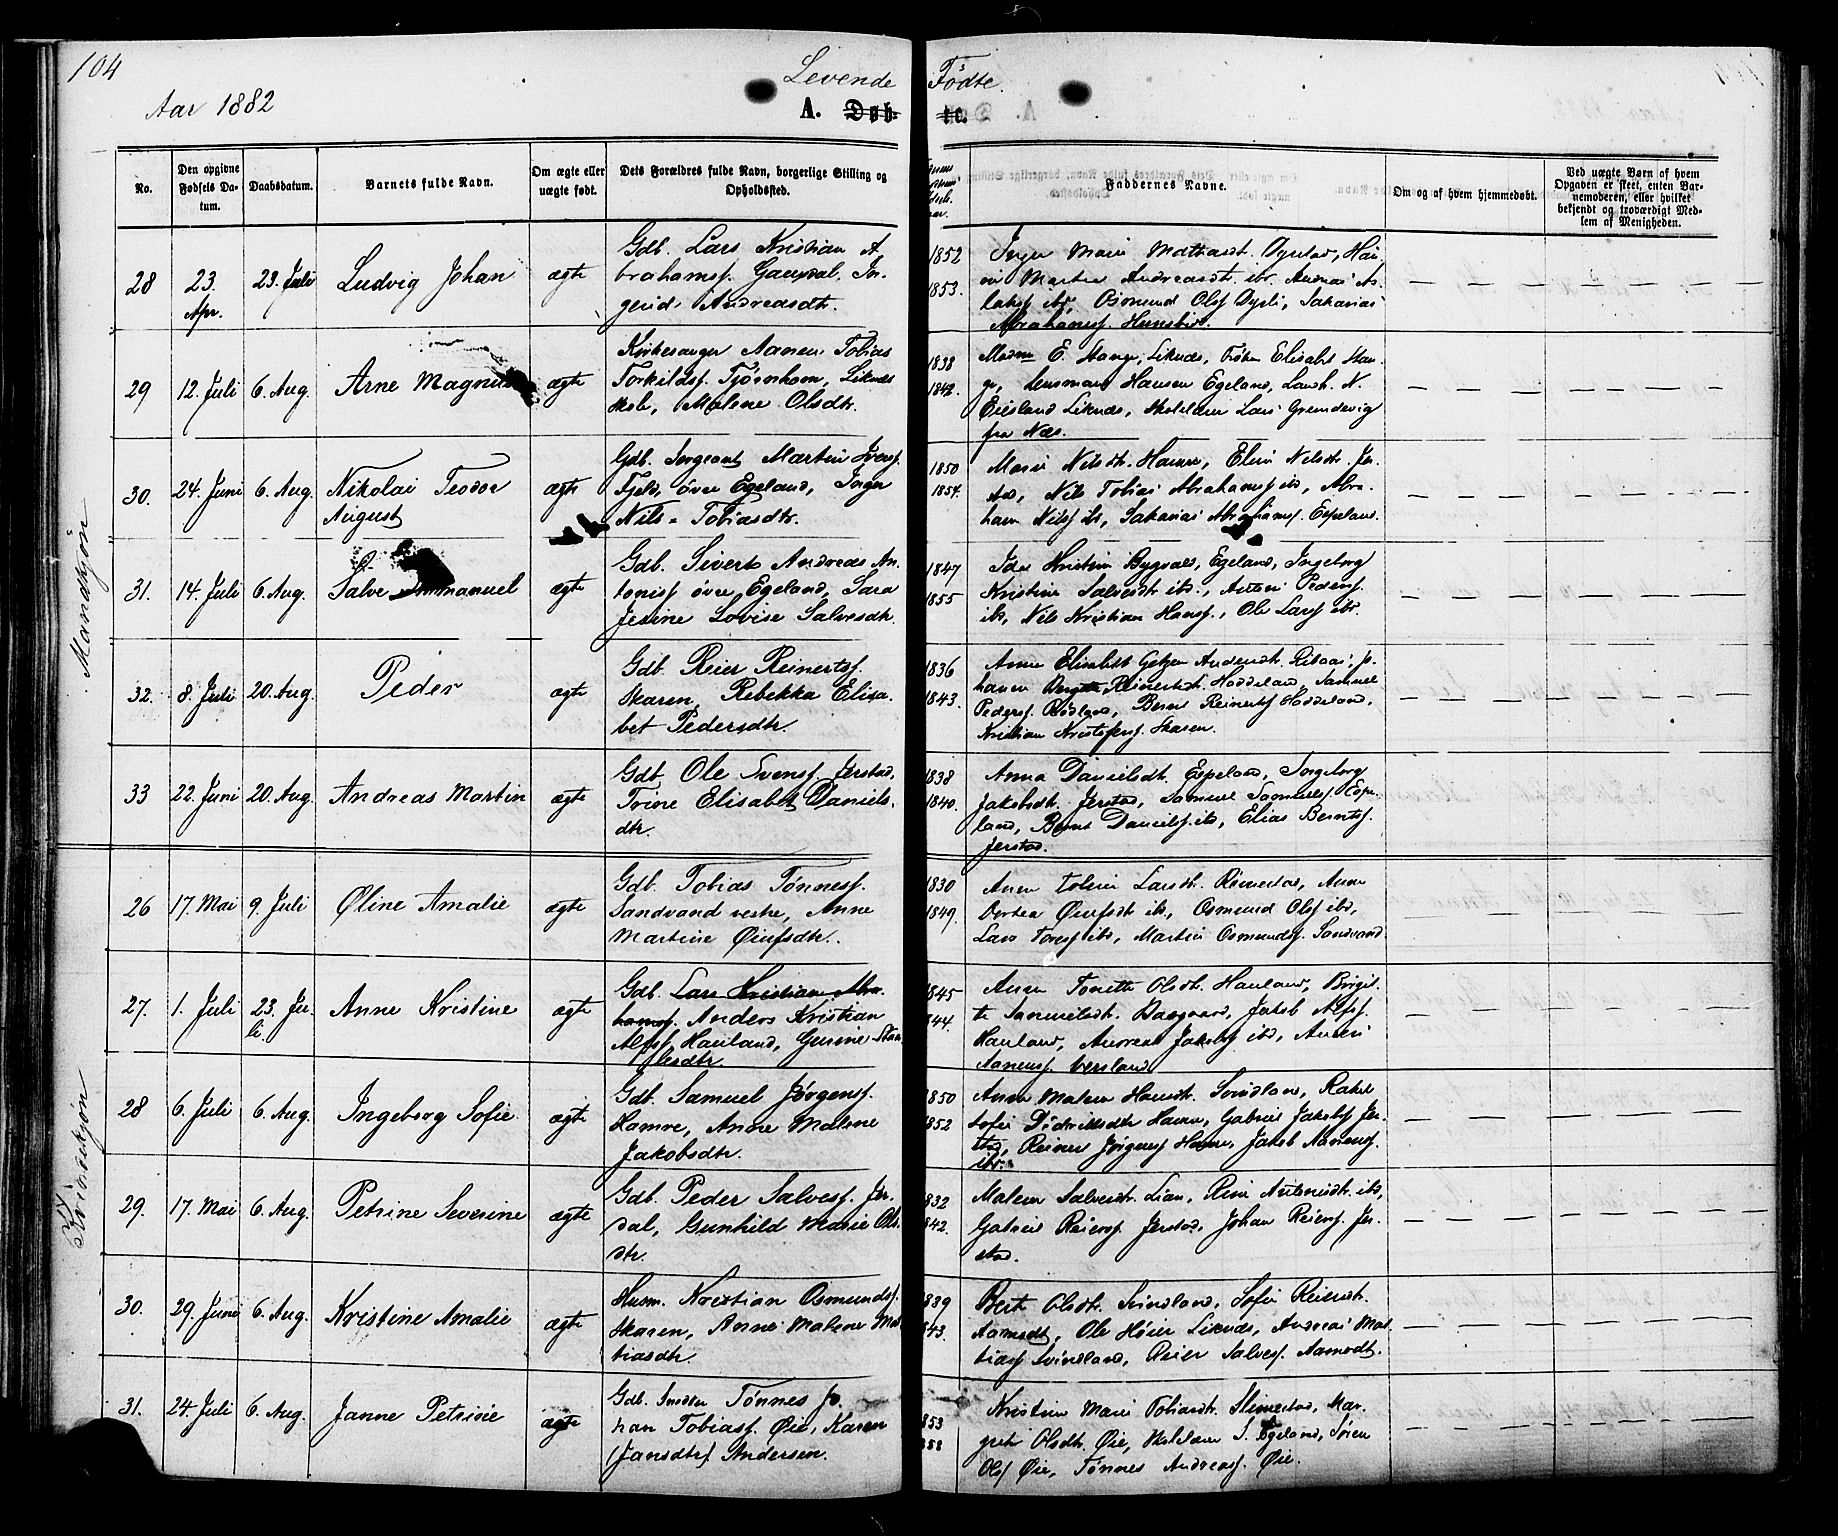 104
Levende Fødte.
Aar 1882
A. Døb-te.
No.
Den opgivne Fødsels Datum.
Daabsdatum.
Barnets fulde Navn.
Om ægte eller uægte født.
Dets Forældres fulde Navn, borgerlige Stilling og Opholdssted.
Faddernes Navne.
Om og af hvem hjemmedøbt.
Ved uægte Børn af hvem Opgaven er skeet, enten Barnemoderen, eller hvilket bekjendt og troværdigt Medlem af Menigheden.
Mandkjøn
28
23. Apr.
23. Juli
Ludvig Johan
ægte
Gdb. Lars Kristian A
brahamsf. Gausdal, In
gerid Andreasdtr.
1852
1853.
Inger Marie
Martea Andreasdt. ibr.
Osmund Olsf Dysli, Sakarias
Abrahamsf.
29
12. Juli
6. Aug.
Arne Magnus
ægte
Kirkesanger Aanen Tobias
Torkildsf. Tjørnhom, Liknes
skole, Malene Olsdtr.
1838
1842.
E. Stange, Liknes, Frøken Elisabet Stan
ge, Lensmand Hansen Egeland, Landh. N.
Eiesland Liknes, Skolelærer Lars
fra Næs.
30.
24. Juni
6. Aug.
Nikolai Teodor
August
ægte
Gdb. Sergeant Martin Iversf.
Fjeld, øvre Egeland, Inger
Nils-Tobiasdtr.
1850
1854.
Marie Nilsdtr. Hamre, Elin Nilsdtr. Jer
stad, Nils Tobias Abrahamsf ibd, Abra
ham Nilsf ib, Sakarias Abrahamsf. Espeland.
31.
14. Juli
6. Aug.
Salve Immanuel
ægte
Gdb. Sivert Andreas An
tonisf øvre Egeland, Sara
Jesine Lovise Salvesdtr.
1847
1855
Ida Kristine Egeland, Ingeborg
Kristine Salvesdt ib., Pedersf.
ib, Nils Kristian Hansf., Ole Larsf ibr.
32.
8. Juli
20. Aug.
Peder
ægte
Gdb. Reier Reinertsf.
Skaren, Rebekka Elisa
bet Pedersdtr.
1836
1843.
Anna Elisabet
Reinertsdt. Haddeland, Samuel
Pedersf. Rødland, Bernt Reinertsf Haddeland,
Kristian Kristofersf. Skaren.
33
22. Juni
20. Aug.
Andreas Martin
ægte
Gdb. Ole Svensf. Jerstad,
Trine Elisabet Daniels
dtr.
1838
1840.
Anna Danielsdt. Espeland, Ingeborg
Jakobsdt. Jerstad, Samuel Samuelsf Espe
land, Bernt Danielsf. ib, Elias Berntsf.
Jerstad.
Kvindekjøn
26
17. Mai
9. Juli
Øline Amalie
ægte
Gdb. Tobias Tønnesf.
Sandvand vestre, Anne
Martine Øiufsdtr.
1830
1849.
Anna Larsdt. Rimestad, Anna
Dortea Øiufsdt ib., Osmund Olsf ibd,
Lars Toresf ibd, Martin Osmundsf. Sandvand
27.
1. Juli
23. Ju
li.
Anne Kristine
ægte
Gdb. Lars Kristian Abra
hamsf. Anders Kristian
Alfsf Hauland, Gurine
Olesdtr.
1845
1844.
Anna Tonette Olsdt. Hauland, Birgit
te Samuelsdt. Jakob Alfsf.
Hauland, Andreas Jakobsf ibd,
Aanensf. Versland
28
6. Juli
6. Aug.
Ingeborg Sofie
ægte
Gdb. Samuel Jørgensf.
Hamre, Anne Malene
Jakobsdtr.
1850
1852
Anna Malene Hansdt. Svindland, Rakel
Sofie Didriksdtr Hamre, Gabriel Jakobsf Jer
stad, Reiner Jørgensf Hamre, Jakob Aanensf.
ibr.
29.
17. Mai
6. Aug.
Petrine Severine
ægte
Gdb. Peder Salvesf. Jer
dal, Gunhild Marie Ols
dtr.
1832
1842.
Malene Salvesdt. Lian, Rine Antonisdt. ibd,
Gabriel Reiersf. Jerstad, Johan Reiersf. Jer
stad.
30.
29. Juni
6. Aug.
Kristine Amalie
ægte
Husm. Kristian Osmundsf.
Skaren, Anne Malene Mat
tiasdtr.
1839
1843.
Berte Olsdt. Svindland, Sofie Reiersdt.
Aamodt, Ole Høier Liknes, Andreas Mat
tiasf Svindland, Reier Salvesf. Aamodt.
31.
24. Juli
6. Aug.
Janne Petrine
ægte
Gdb. Smeden Tønnes Jo
han Tobiasf. Øie, Karen
(Jansdtr) Andersen.
1853
1858
Kristine Marie Tobiasdt. Slimestad, Mar
grete Olsdt. Øie, Skolelærer S. Egeland, Søren
Olsf Øie, Tønnes Andreasf. Øie.